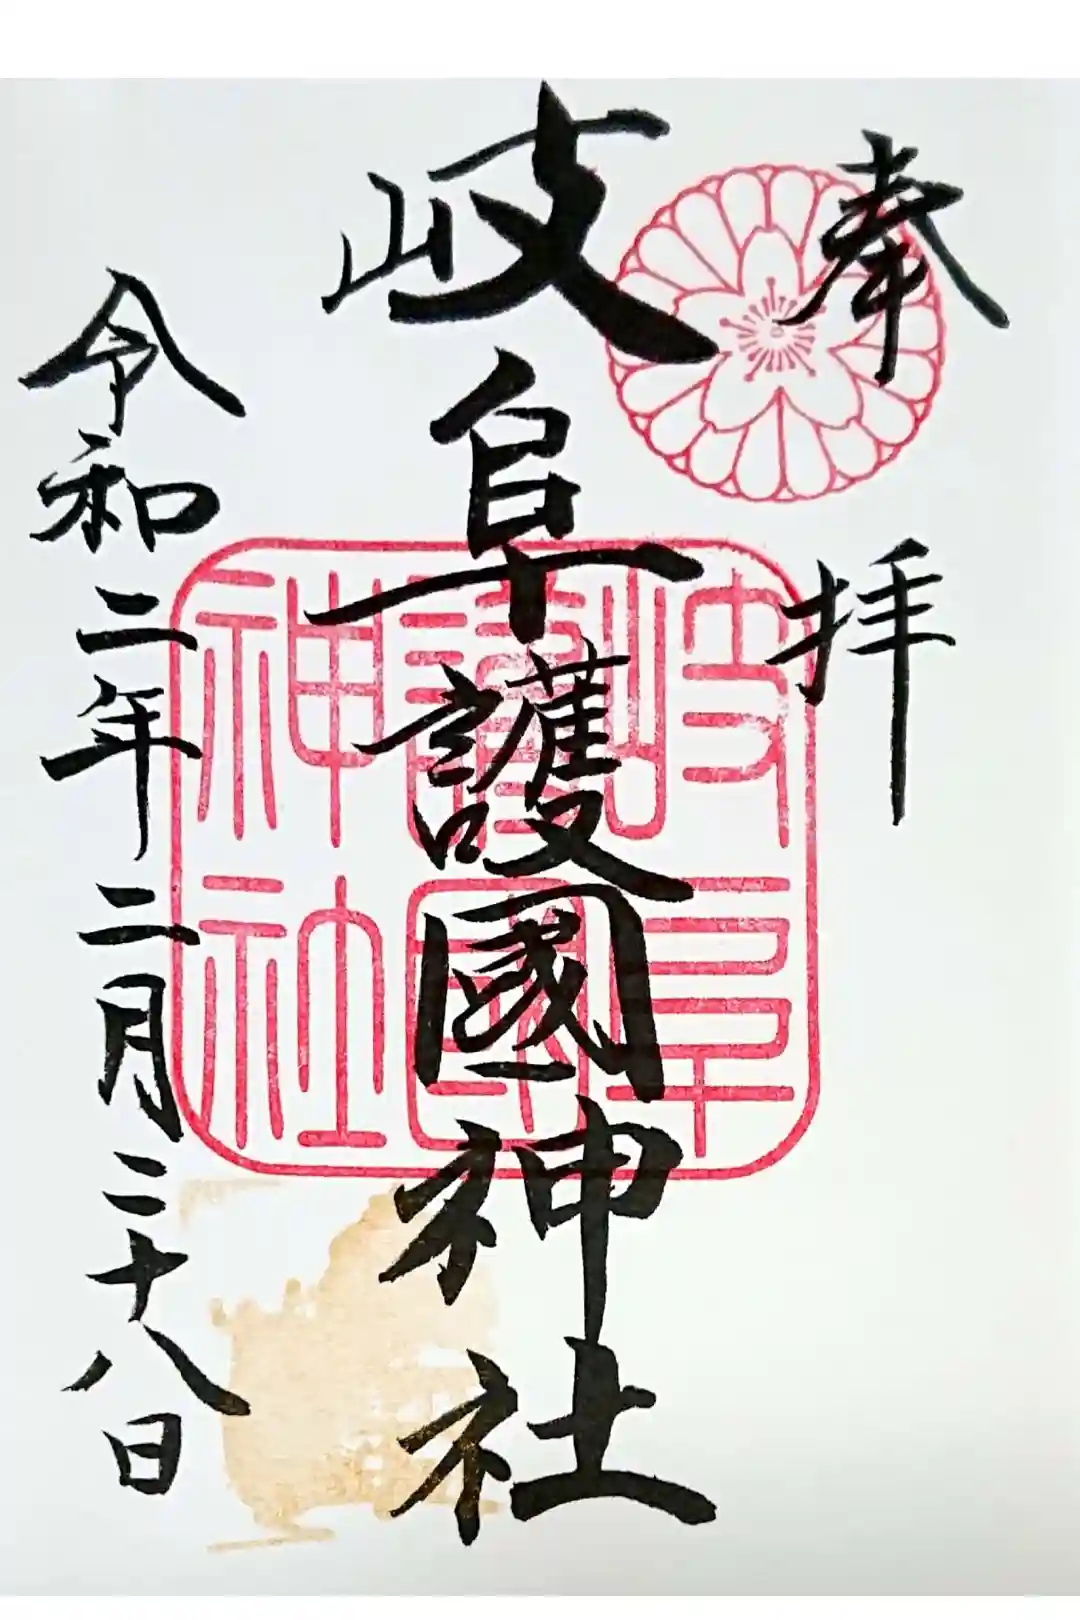 奉拝
岐阜護國神社
令和二年二月二十八日
岐阜
護國
神社